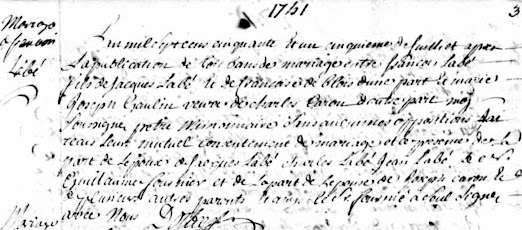 1751
3
Mariage
de francois
Labé
L'an mil sept cens cinquante et un cinquieme de Juillet et apres
La publication de trois bans de mariage entre francois Labé
fils de Jacques Labé et de francoise de blois d'une part et marie
Joseph Gaulin veuve de charles Caron d'autre part moy
soussigné pretre missionnaire sans aucunes oppositions ay
receu leur mutuel consentement de mariage et ce presence de la
part de Lepoux de Jacques Labé charles Labé Jean Labé
Guillaume fournier et de la part de Lepouse de Joseph caron
et plusieurs autres parents
avec Nous
Mariage